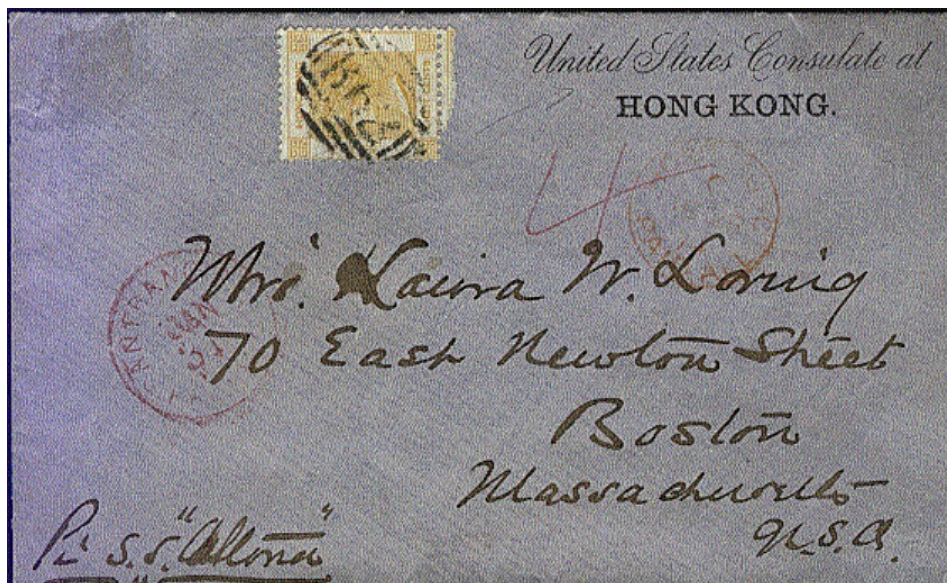 United States Consulate at
HONG KONG.
B62
4
Mrs. Laura W. Loring
70 East Newton Street
Boston
Massachusetts
U.S.A.
Pr S.S. "Altona"